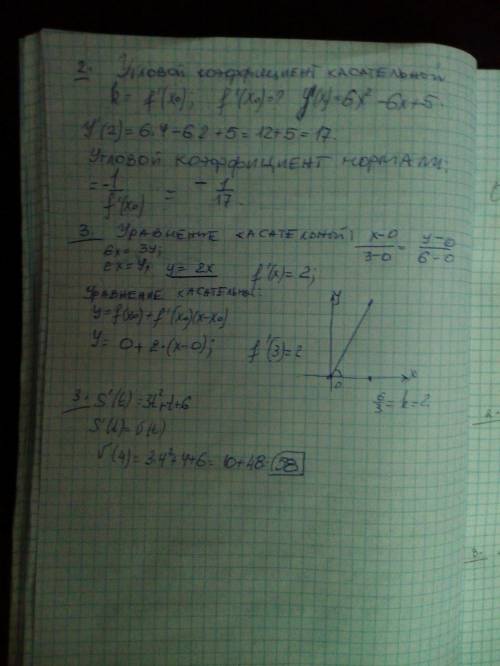 2. Угловой коэффициент касательной
k = f'(x₀); f'(x₀)=? y'(x)=6x²-6x+5.
y'(2)=6·4-6·2+5=12+5=17.
Угловой коэффициент нормали;
= -1/f'(x₀) = -1/17.
3. Уравнение касательной: (x-0)/(3-0) = (y-0)/(6-0)
6x = 3y;
2x=y; y=2x f'(x)=2;
Уравнение касательн.:
y=f(x₀)+f'(x₀)(x-x₀)
y= 0+2·(x-0); f'(3)=2
y
0 x
6/3 = k = 2
3. S'(t)=3t²+t+6
S'(t)=V(t)
V(4)=3·4²+4+6=10+48=58